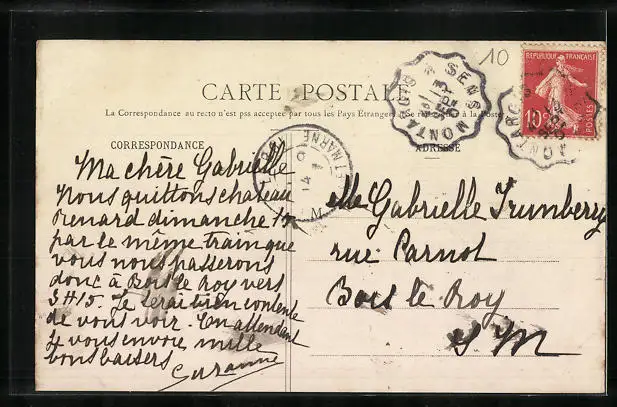 10
REPUBLIQUE FRANÇAISE
10c POSTES
SENS A MONTARGIS
CARTE POSTALE
La Correspondance au recto n'est pas acceptée par tous les Pays Étrangers (Se renseigner à la Poste)
CORRESPONDANCE
ADRESSE
Ma chère Gabrielle
Nous quittons chateau
Renard dimanche
par le même train que
vous nous passerons
donc à Bois le Roy vers
3H15. Je serai bien contente
de vous voir. En attendant
je vous envoie mille
bons baisers
Suzanne
elle Gabrielle Trumberry
rue Carnot
Bois le Roy
S M